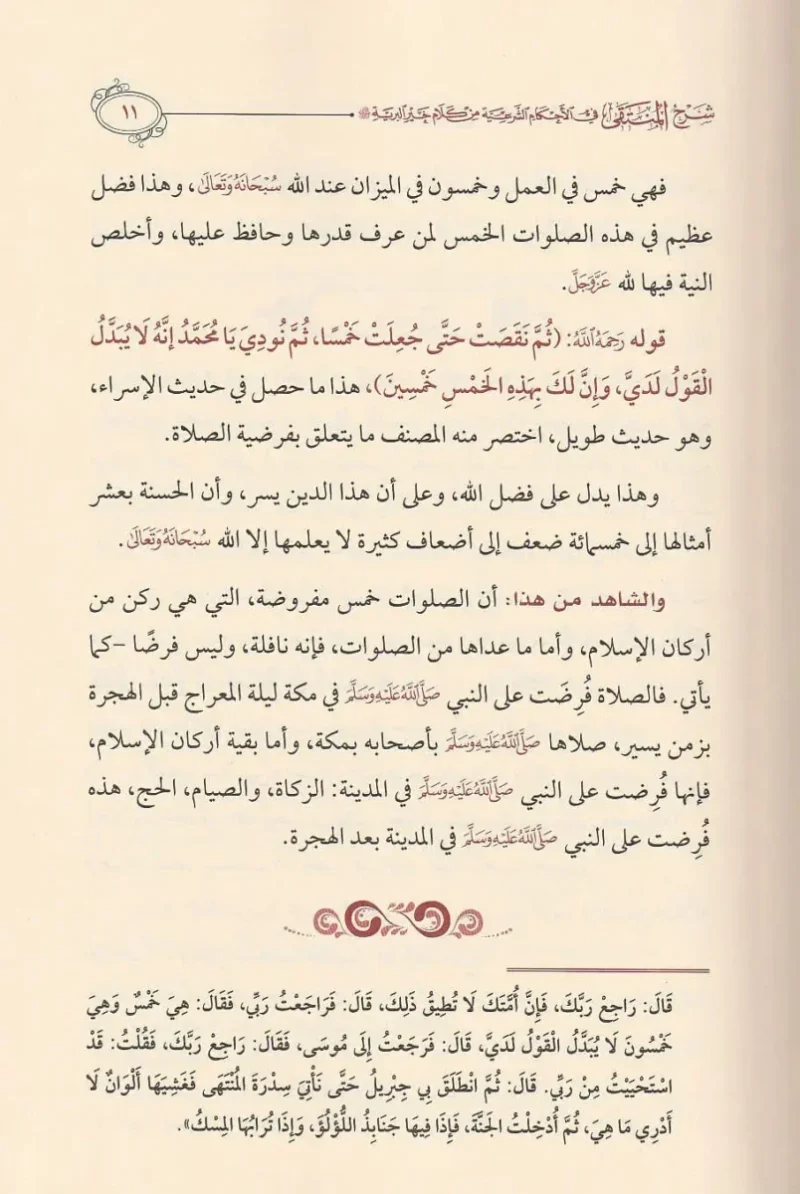 شرح المنتقى في الأحكام الشرعية من كلام خير البرية ﷺ
١١
فهي خمس في العمل وخمسون في الميزان عند الله سُبْحَانَهُ وَتَعَالَىٰ، وهذا فضل
عظيم في هذه الصلوات الخمس لمن عرف قدرها وحافظ عليها، وأخلص
النية فيها لله عَزَّوَجَلَّ.
قوله رَحِمَهُ اللَّهُ: (ثُمَّ نَقَصَتْ حَتَّى جُعِلَتْ خَمْسًا، ثُمَّ نُودِيَ يَا مُحَمَّدُ إِنَّهُ لَا يُبَدَّلُ
الْقَوْلُ لَدَيَّ، وَإِنَّ لَكَ بِهَذِهِ الخَمْسِ خَمْسِينَ)، هذا ما حصل في حديث الإسراء،
وهو حديث طويل، اختصر منه المصنف ما يتعلق بفرضية الصلاة.
وهذا يدل على فضل الله، وعلى أن هذا الدين يسر، وأن الحسنة بعشر
أمثالها إلى خمسمائة ضعف إلى أضعاف كثيرة لا يعلمها إلا الله سُبْحَانَهُ وَتَعَالَىٰ.
والشاهد من هذا: أن الصلوات خمس مفروضة، التي هي ركن من
أركان الإسلام، وأما ما عداها من الصلوات، فإنه نافلة، وليس فرضًا –كما
يأتي. فالصلاة فُرِضَت على النبي صَلَّى اللَّهُ عَلَيْهِ وَسَلَّمَ في مكة ليلة المعراج قبل الهجرة
بزمن يسير، صلاها صَلَّى اللَّهُ عَلَيْهِ وَسَلَّمَ بأصحابه بمكة، وأما بقية أركان الإسلام،
فإنها فُرِضت على النبي صَلَّى اللَّهُ عَلَيْهِ وَسَلَّمَ في المدينة: الزكاة، والصيام، الحج، هذه
فُرِضت على النبي صَلَّى اللَّهُ عَلَيْهِ وَسَلَّمَ في المدينة بعد الهجرة.
قَالَ: رَاجِعْ رَبَّكَ، فَإِنَّ أُمَّتَكَ لَا تُطِيقُ ذَلِكَ، قَالَ: فَرَاجَعْتُ رَبِّي، فَقَالَ: هِيَ خَمْسٌ وَهِيَ
خَمْسُونَ لَا يُبَدَّلُ الْقَوْلُ لَدَيَّ، قَالَ: فَرَجَعْتُ إِلَى مُوسَى، فَقَالَ: رَاجِعْ رَبَّكَ، فَقُلْتُ: قَدْ
اسْتَحْيَيْتُ مِنْ رَبِّي. قَالَ: ثُمَّ انْطَلَقَ بِي جِبْرِيلُ حَتَّى نَأْتِيَ سِدْرَةَ المُنْتَهَى فَغَشِيَهَا أَلْوَانٌ لَا
أَدْرِي مَا هِيَ، ثُمَّ أُدْخِلْتُ الجَنَّةَ، فَإِذَا فِيهَا جَنَابِذُ اللُّؤْلُؤَ، وَإِذَا تُرَابُهَا المِسْكُ».